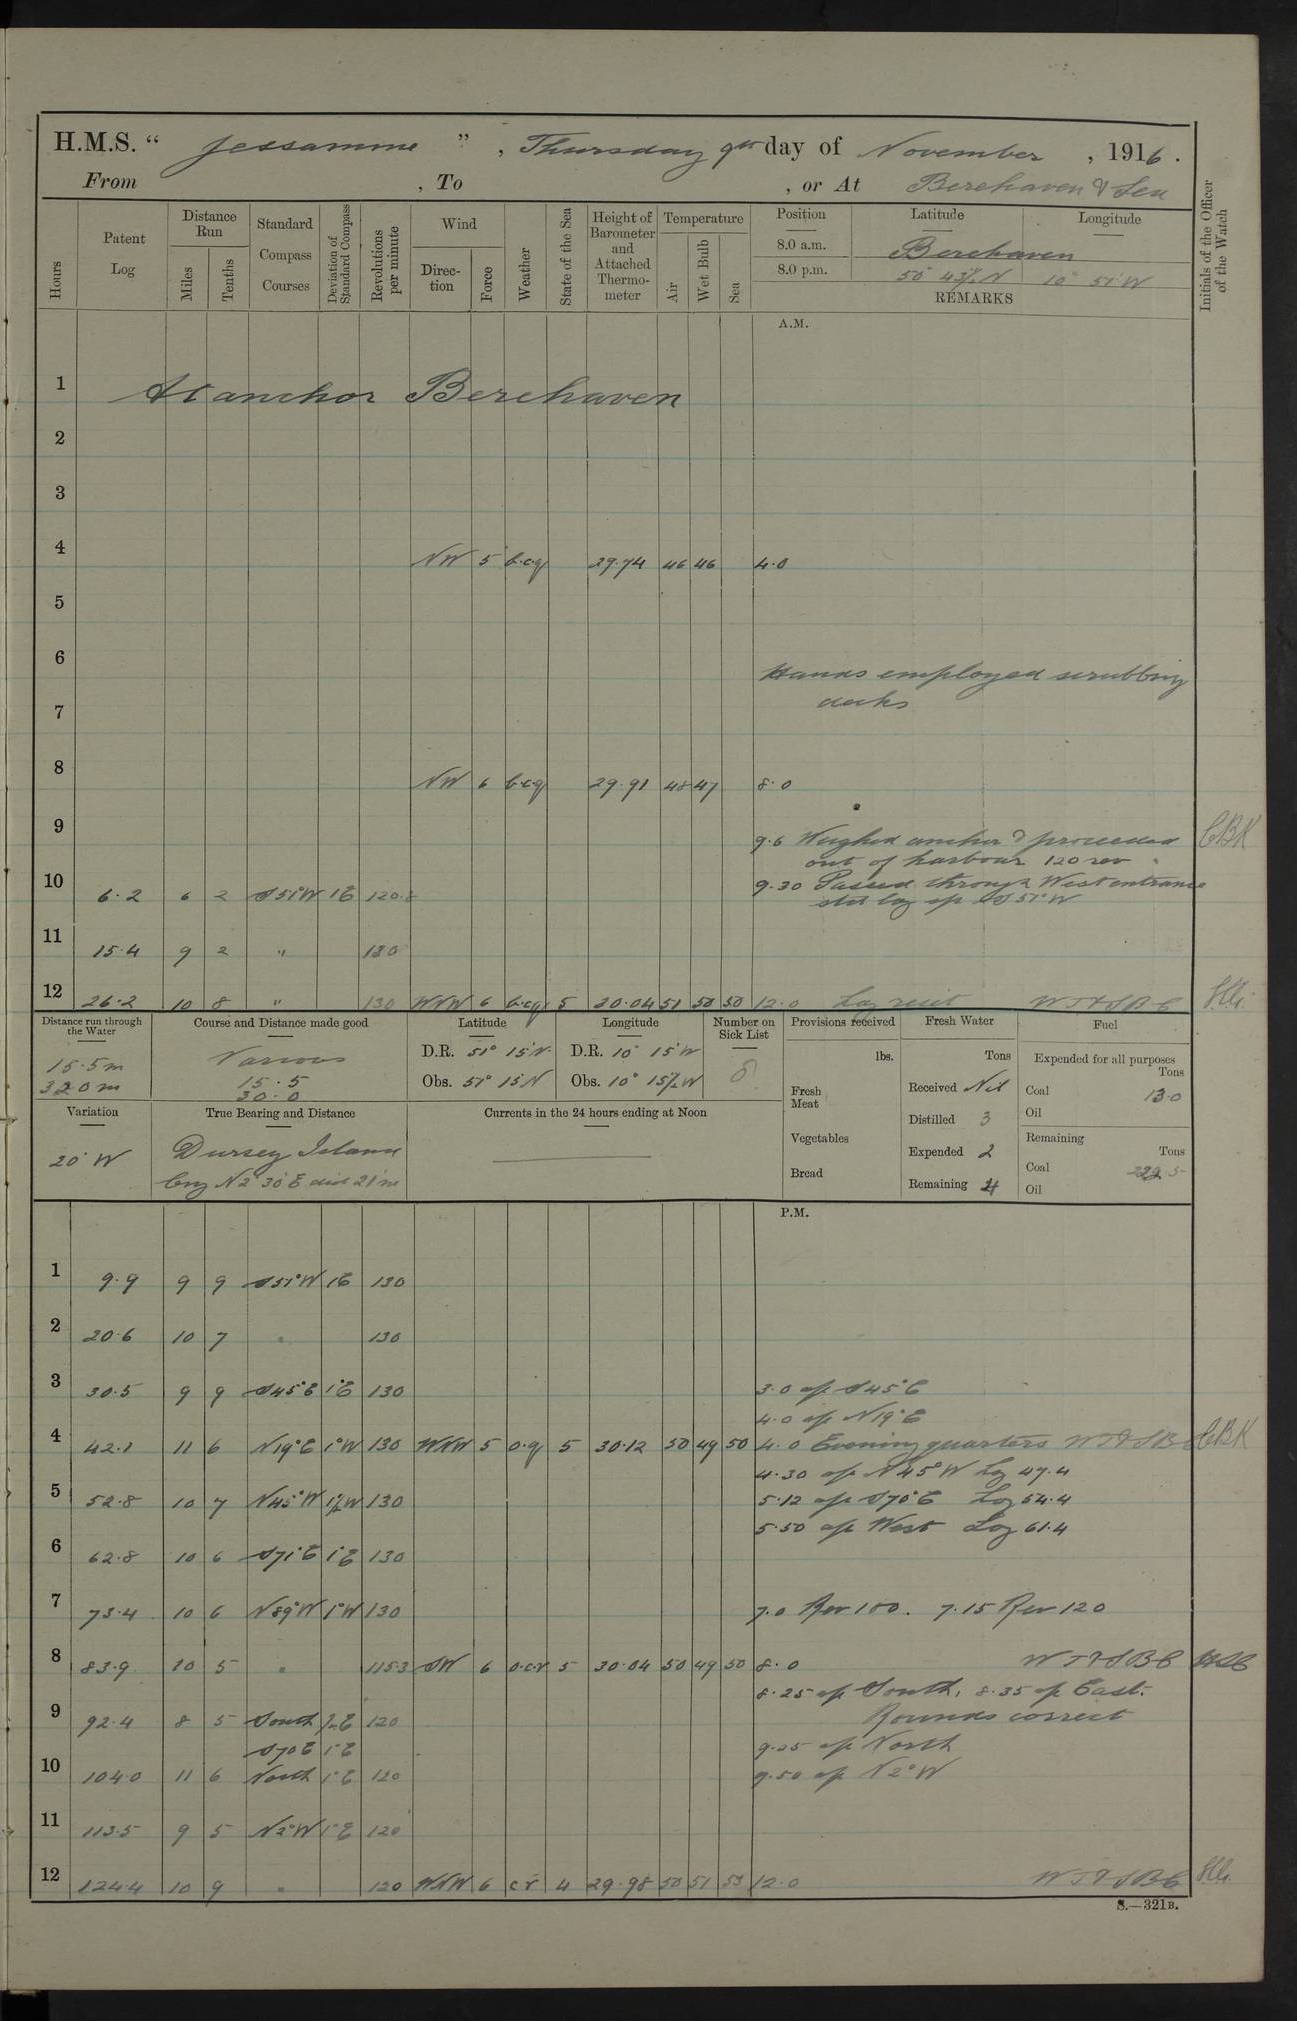 H.M.S. “ Jessamine ” , Thursday 9th day of November , 1916 .
From , To , or At Berehaven & Sea
Hours
Patent Log
Distance Run
Miles
Tenths
Standard Compass Courses
Deviation of Standard Compass
Revolutions per minute
Wind
Direction
Force
Weather
State of the Sea
Height of Barometer and Attached Thermometer
Temperature
Air
Wet Bulb
Sea
Position Latitude Longitude
8.0 a.m. Berehaven
8.0 p.m. 50° 43½' N 10° 51' W
REMARKS
Initials of the Officer of the Watch
A.M.
1 At anchor Berehaven
2
3
4 NW 5 b.c.q 29.74 46 46 4.0
5
6
Hands employed scrubbing
7 decks
8 NW 6 b.c.q 29.91 48 47 8.0
9
9.6 Weighed anchor & proceeded CBK
out of harbour 120 rev
10 6.2 6 2 S51°W 1E 120.8 9.30 Passed through West entrance
set log a/c S51°W
11 15.4 9 2 " 130
12 26.2 10 8 " 130 WNW 6 b.c.q 5 30.04 51 50 50 12.0 Log reset W T & S B C
Distance run through the Water
15.5m
320m
Course and Distance made good
Various
15.5
30.0
Latitude
D.R. 51° 15' N
Obs. 51° 15' N
Longitude
D.R. 10° 15' W
Obs. 10° 15½' W
Number on Sick List
Provisions received
lbs.
Fresh Meat
Vegetables
Bread
Fresh Water
Tons
Received Nil
Distilled 3
Expended 2
Remaining
Fuel
Expended for all purposes
Tons
Coal 13.0
Oil
Remaining
Tons
Coal
Oil
Variation
20° W
True Bearing and Distance
Dursey Island
brg N2°30'E dist 21'm
Currents in the 24 hours ending at Noon
P.M.
1 9.9 9 9 S51°W 1E 130
2 20.6 10 7 " 130
3 30.5 9 9 S45°E 1°E 130 3.0 a/c S45°E
4.0 a/c N19°E
4 42.1 11 6 N19°E 1°W 130 WNW 5 o.q 5 30.12 50 49 50 4.0 Evening quarters W T & S B C CBK
4.30 a/c N45°W Log 47.4
5 52.8 10 7 N45°W 1½W 130 5.12 a/c S70°E Log 54.4
5.50 a/c West Log 61.4
6 62.8 10 6 S71°E 1°E 130
7 73.4 10 6 N89°W 1°W 130 7.0 Rev 100. 7.15 Rev 120
8 83.9 10 5 " 115.3 SW 6 o.c.r 5 30.04 50 49 50 8.0 W T & S B C
8.25 a/c South, 8.35 a/c East.
9 92.4 8 5 South ½E 120 Rounds correct
S70E 1°E 9.25 a/c North
10 104.0 11 6 North 1°E 120 9.50 a/c N2°W
11 113.5 9 5 N2°W 1°E 120
12 124.4 10 9 " 120 WNW 6 c r 4 29.98 50 51 53 12.0 W T & S B C
S.—321B.